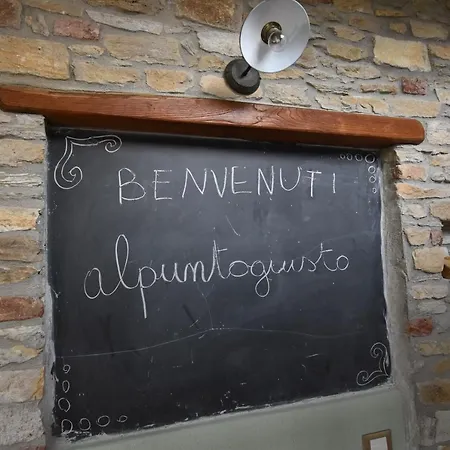 BENVENUTI
alpuntogiusto